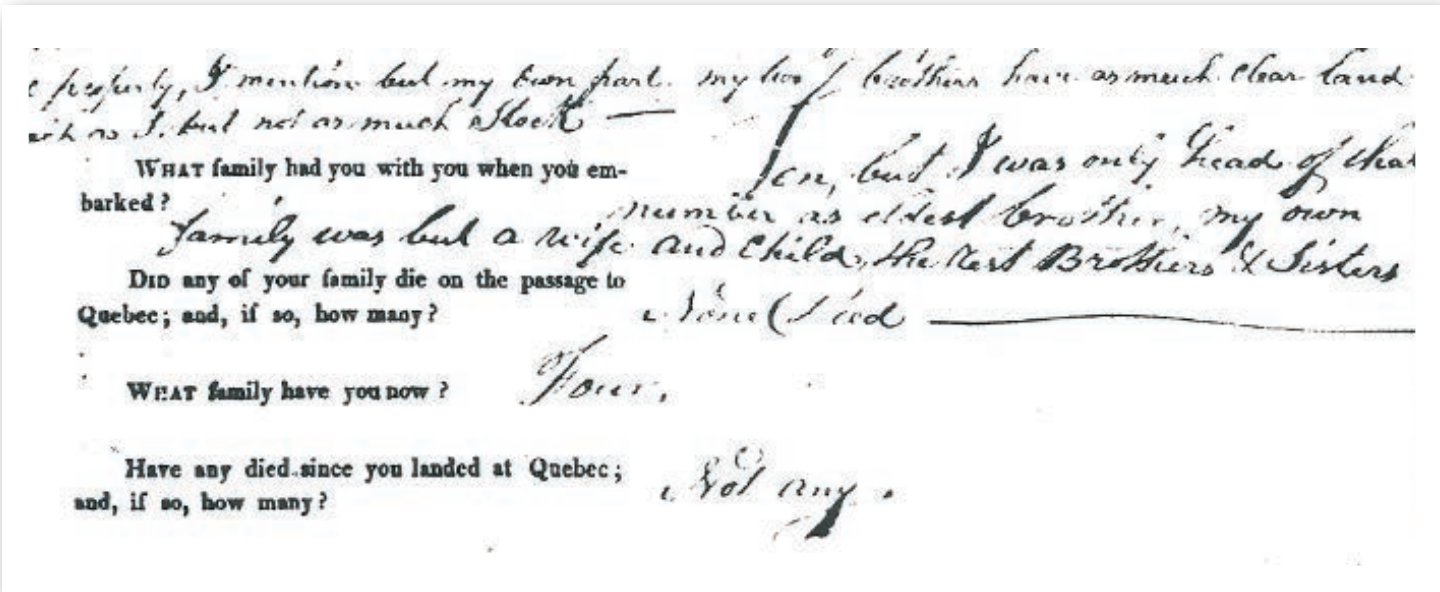 property, I mention but my own part. my two brothers have as much clear land
as I. but not as much Stock —
WHAT family had you with you when you em-
barked?
Ten, but I was only head of that
number as eldest brother, my own
family was but a wife and child, the rest Brothers & Sisters
DID any of your family die on the passage to
Quebec; and, if so, how many?
None Died
WHAT family have you now?
Four.
Have any died since you landed at Quebec;
and, if so, how many?
Not any.